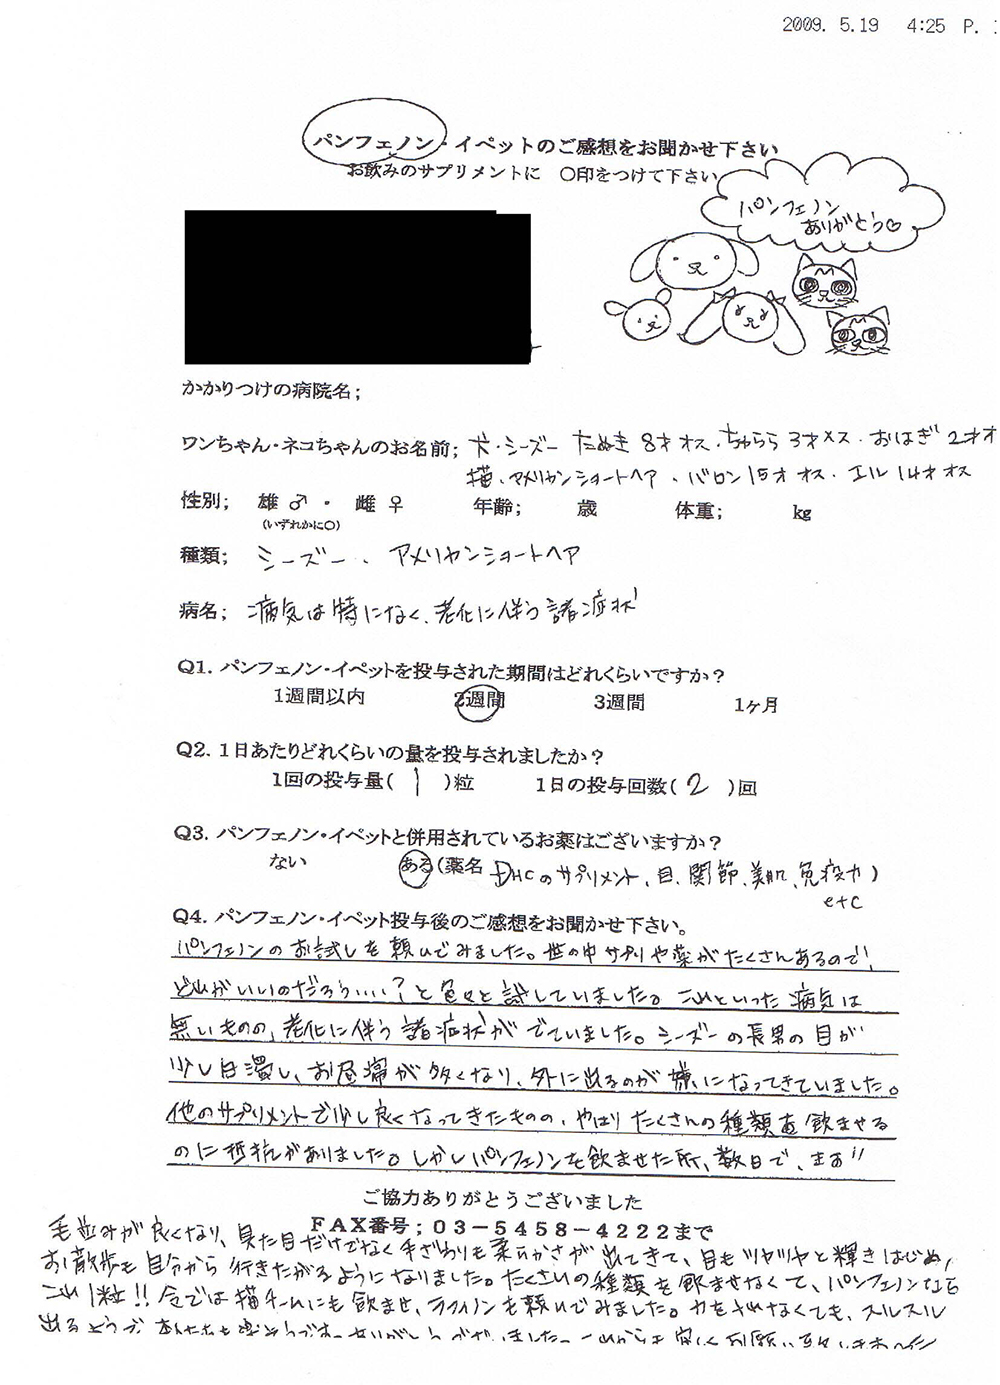 2009. 5.19 4:25 P.
パンフェノン・イペットのご感想をお聞かせ下さい
お飲みのサプリメントに ○印をつけて下さい
パンフェノン
ありがとう♡
かかりつけの病院名;
ワンちゃん・ネコちゃんのお名前; 犬・シーズー たぬき 8才オス・ちゅらら 3才メス・おはぎ 2才オ
猫・アメリカンショートヘア・バロン 15才オス・エル 14才オス
性別; 雄 ♂ ・ 雌 ♀ 年齢; 歳 体重; kg
(いずれかに○)
種類; シーズー、アメリカンショートヘア
病名; 病気は特になく、老化に伴う諸症状
Q1. パンフェノン・イペットを投与された期間はどれくらいですか?
1週間以内 2週間 3週間 1ヶ月
Q2. 1日あたりどれくらいの量を投与されましたか?
1回の投与量( 1 )粒 1日の投与回数( 2 )回
Q3. パンフェノン・イペットと併用されているお薬はございますか?
ない ある(薬名 DHCのサプリメント、目、関節、美肌、免疫力)
etc
Q4. パンフェノン・イペット投与後のご感想をお聞かせ下さい。
パンフェノンのお試しを頼んでみました。世の中サプリや薬がたくさんあるので、
どれがいいのだろう・・・・?と色々と試していました。これといった病気は
無いものの、老化に伴う諸症状がでていました。シーズーの長男の目が
少し白濁し、お昼寝が多くなり、外に出るのが嫌になってきていました。
他のサプリメントで少し良くなってきたものの、やはりたくさんの種類を飲ませる
のに抵抗がありました。しかしパンフェノンを飲ませた所、数日で、まず
ご協力ありがとうございました
FAX番号;03-5458-4222まで
毛並みが良くなり、見た目だけでなく手ざわりも柔らかさが出てきて、目もツヤツヤと輝きはじめ、
お散歩も自分から行きたがるようになりました。たくさんの種類を飲ませなくて、パンフェノンなら
これ1粒!!今では猫チームにも飲ませ、ラフィノンも頼んでみました。力を入れなくても、スルスル
出るようで